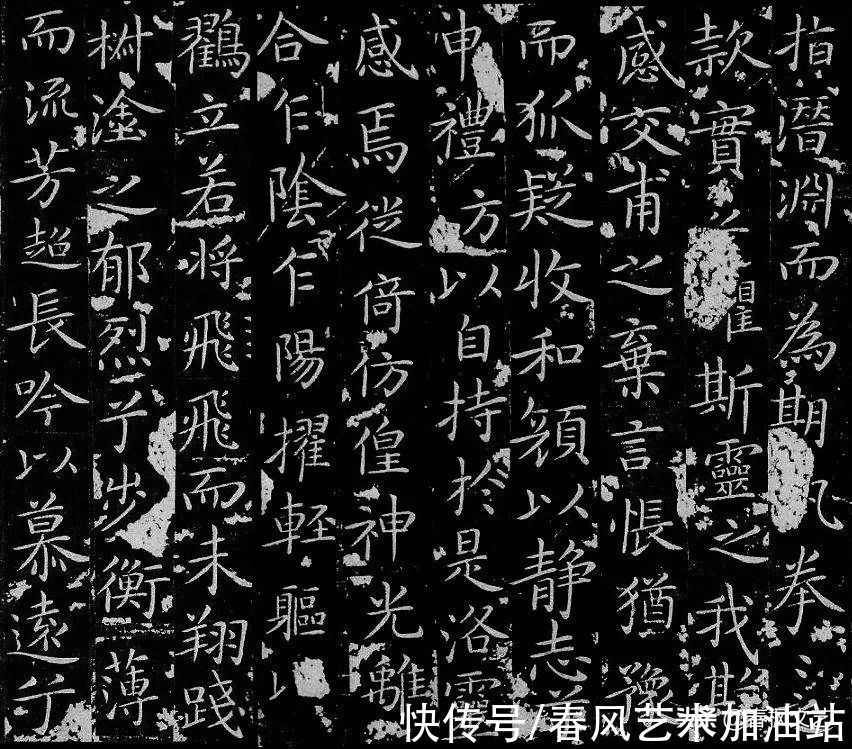 指潛淵而為期拳
款實懼斯靈之我
感交甫之棄言悵猶豫
而狐疑收和顏以静志
申禮方以自持於是洛靈
感焉徙倚仿偟神光離
合乍陰乍陽擢輕軀以
鶴立若將飛飛而未翔踐
椒塗之郁烈乎步衡薄
而流芳超長吟以慕遠兮
快传号/春风艺术加油站